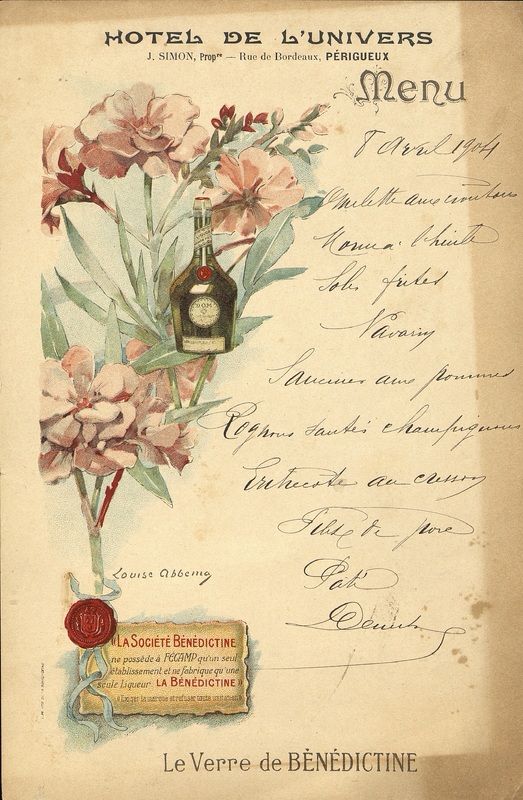 HOTEL DE L'UNIVERS
J. SIMON, Propre — Rue de Bordeaux, PÉRIGUEUX
Menu
8 Avril 1904
Omelette aux croutons
Morue à l'huile
Soles frites
Navarin
Saucisses aux pommes
Rognons sautés champignons
Entrecote au cresson
Filet de porc
Paté
Dessert
Louise Abbema
"LA SOCIÉTÉ BÉNÉDICTINE
ne possède à FÉCAMP qu'un seul
établissement et ne fabrique qu'une
seule liqueur: LA BÉNÉDICTINE"
(Exiger la marque et refuser toute imitation)
DOM
Le Verre de BÉNÉDICTINE